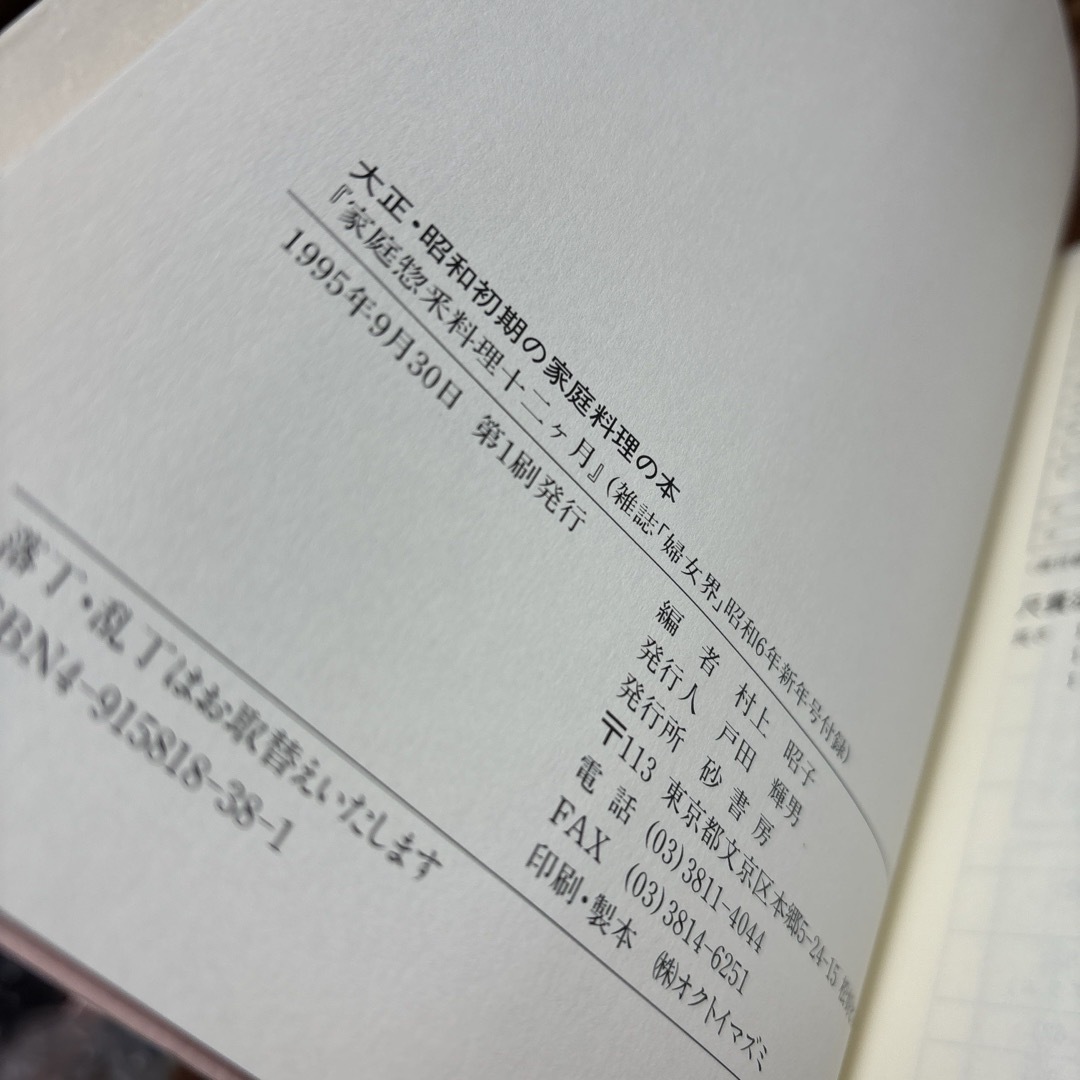 大正・昭和初期の家庭料理の本
『家庭惣釆料理十二ヶ月』(雑誌「婦女界」昭和6年新年号付録)
1995年9月30日 第1刷発行
編者 村上 昭子
発行人 戸田 輝男
発行所 砂書房
〒113 東京都文京区本郷5-24-15
電話 (03)3811-4044
FAX (03)3814-6251
印刷・製本 ㈱オクトイマズミ
落丁・乱丁はお取替えいたします
BN4-915818-38-1